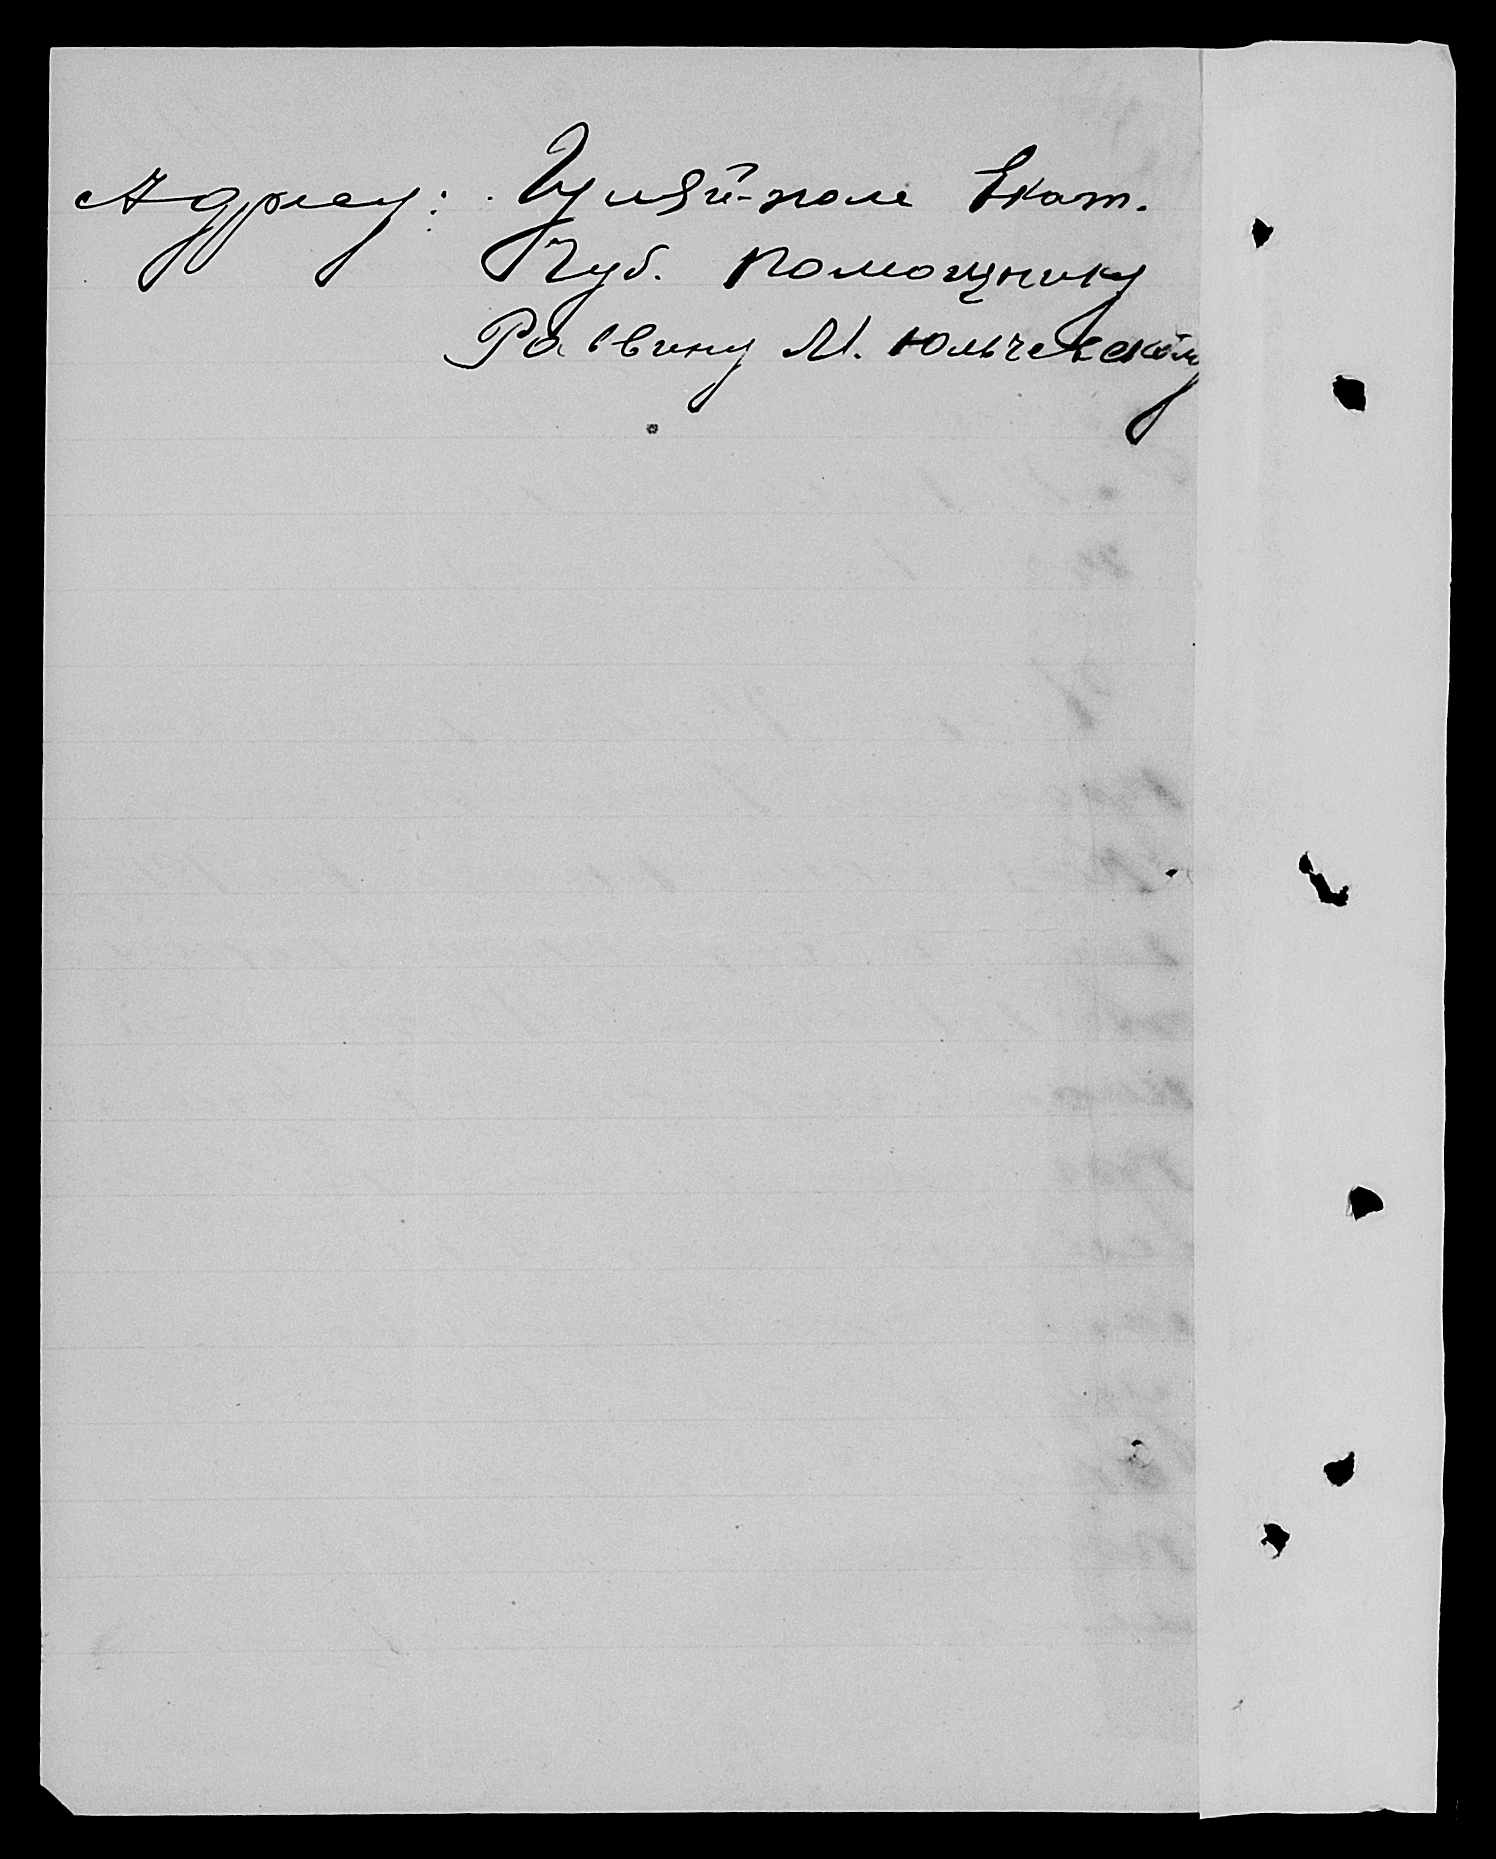 Адресу: Гуляй-поле Екат.
Губ. помощнику
Раввину М. Юльчевскому